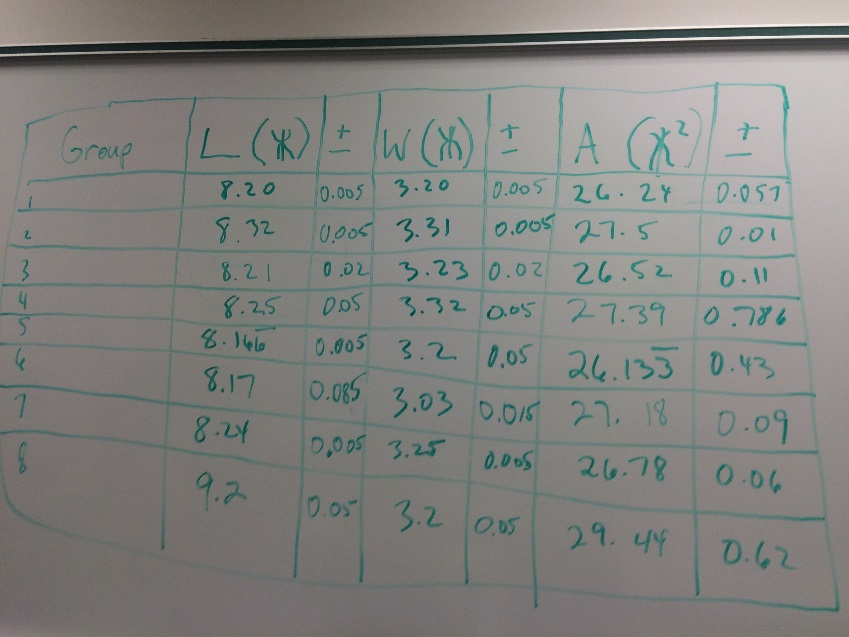 Group L (Ж) ± W (Ж) ± A (Ж²) ±
1 8.20 0.005 3.20 0.005 26.24 0.057
2 8.32 0.005 3.31 0.005 27.5 0.01
3 8.21 0.02 3.23 0.02 26.52 0.11
4 8.25 0.05 3.32 0.05 27.39 0.786
5 8.166̅ 0.005 3.2 0.05 26.133̅ 0.43
6 8.17 0.085 3.03 0.015 27.18 0.09
7 8.24 0.005 3.25 0.005 26.78 0.06
8 9.2 0.05 3.2 0.05 29.44 0.62